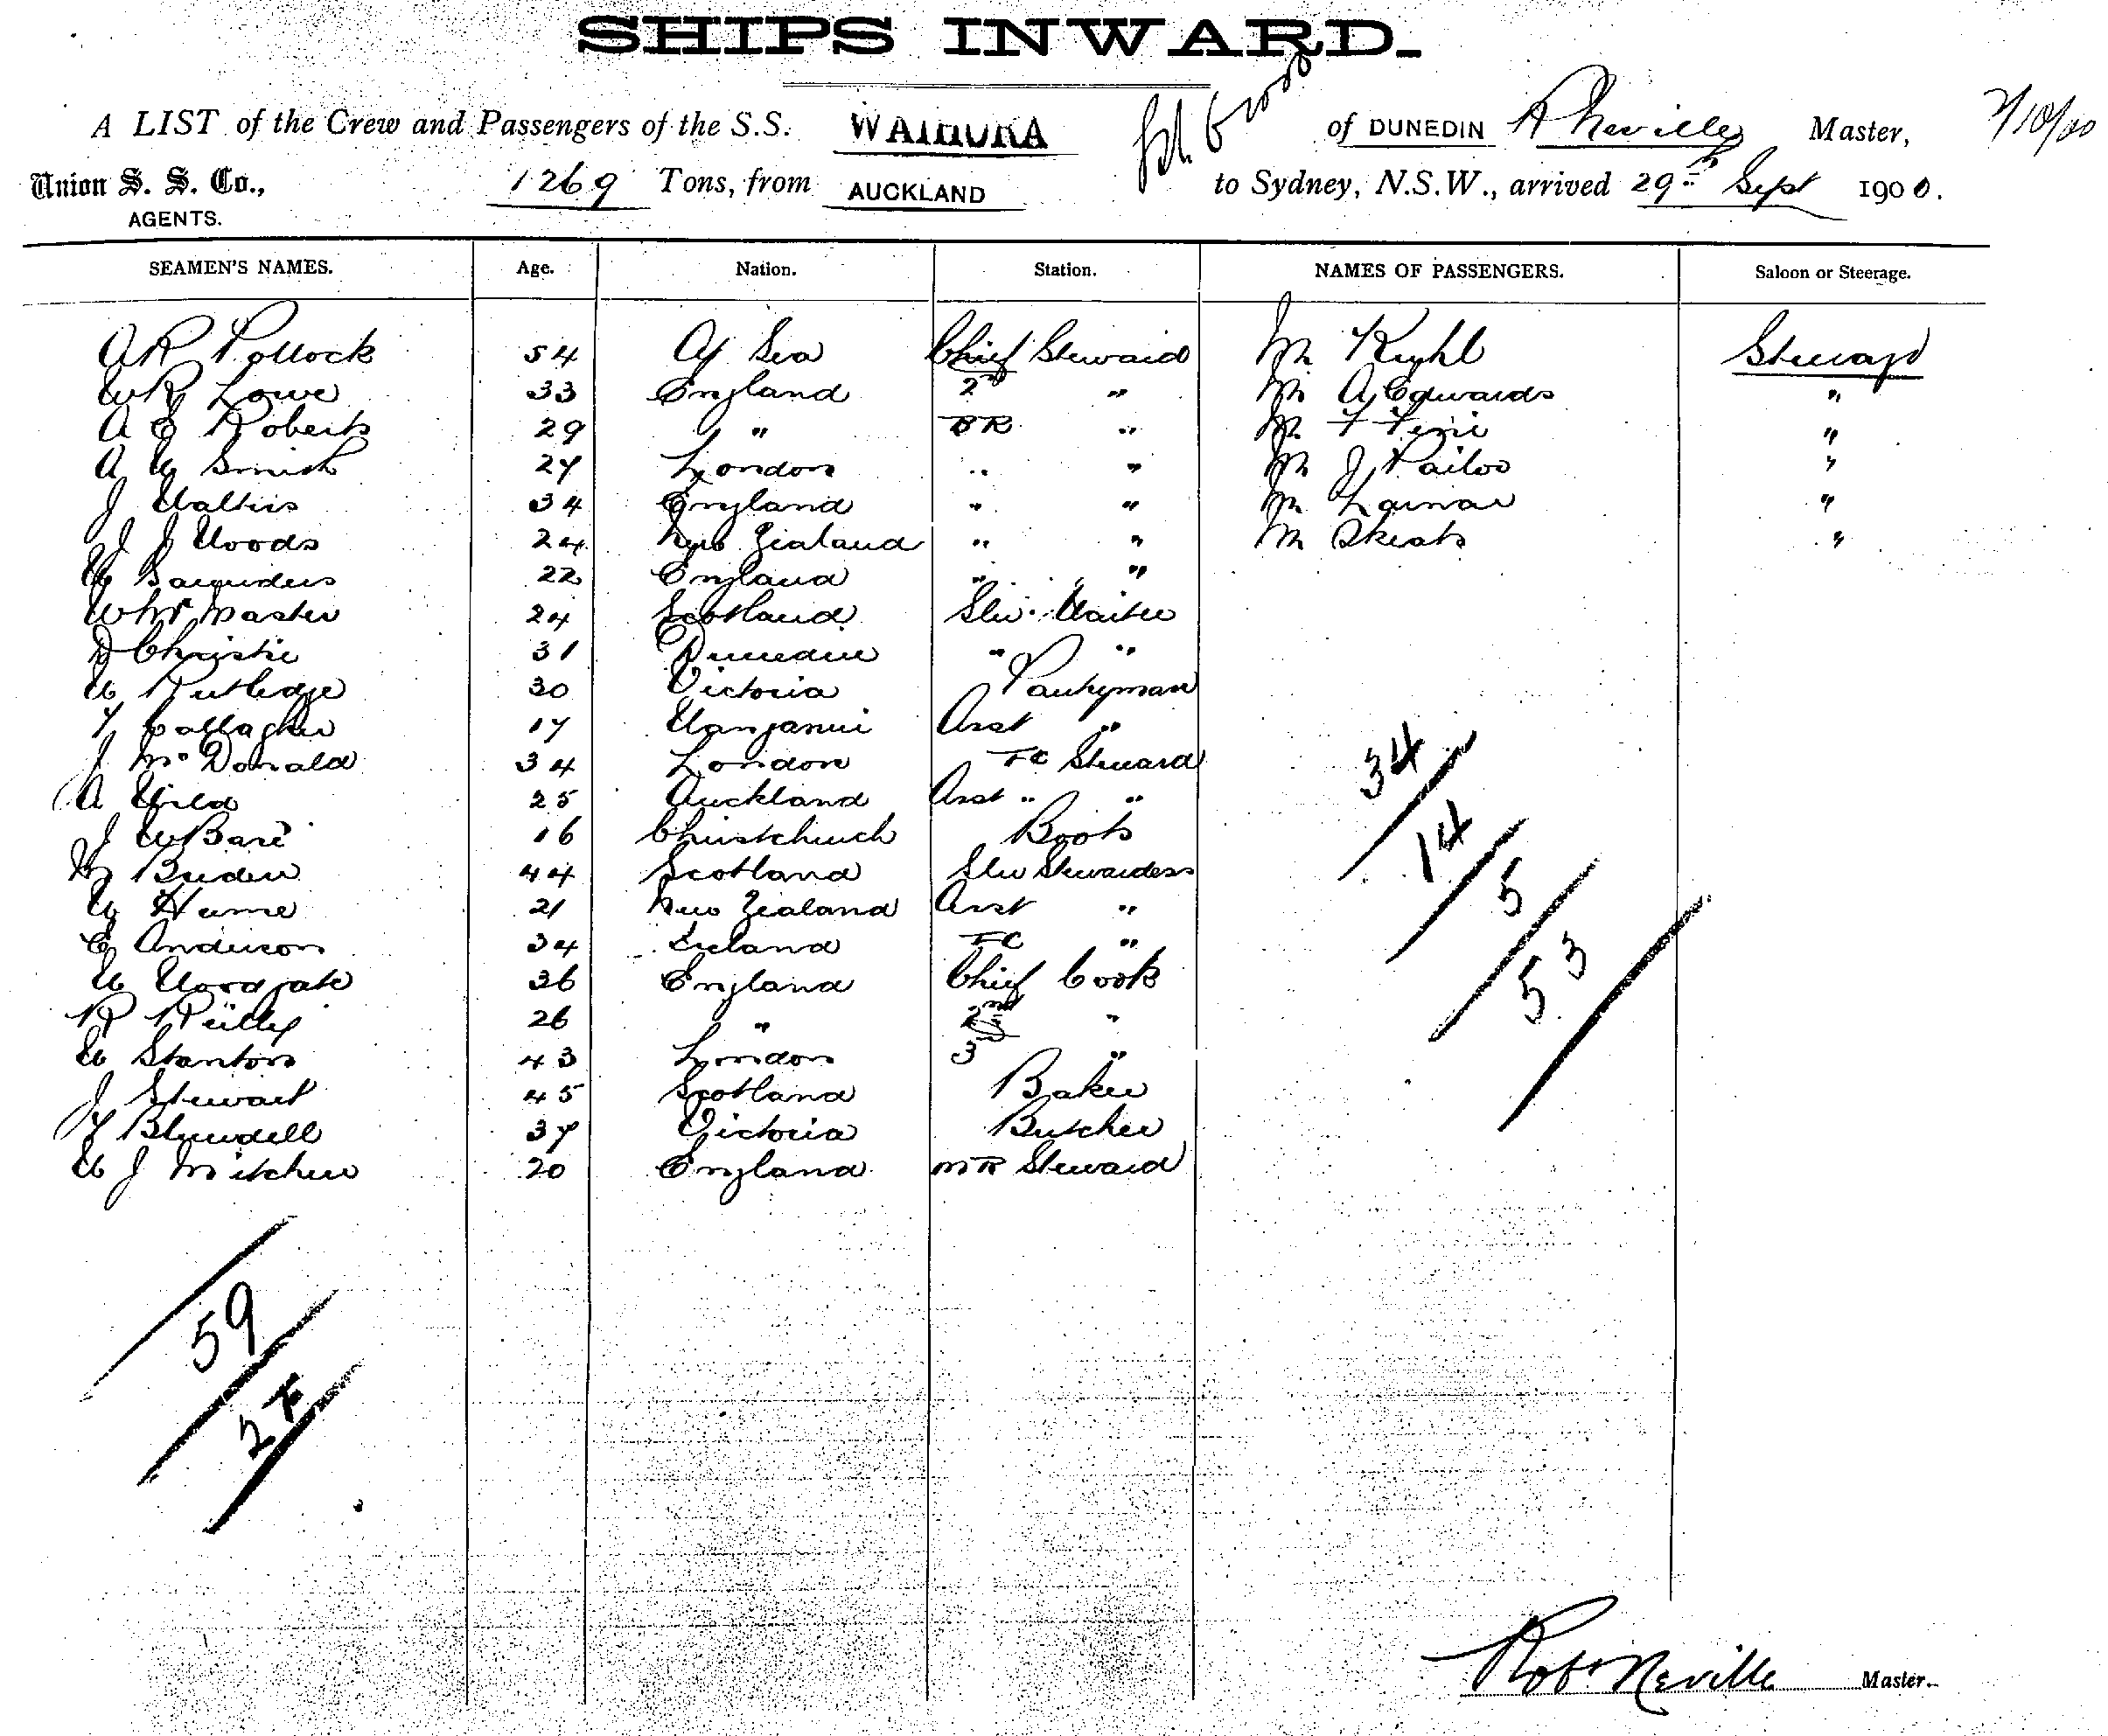 SHIPS INWARD.
A LIST of the Crew and Passengers of the S.S. WAIHORA of DUNEDIN R Neville Master, 2/10/00
Union S. S. Co., 1269 Tons, from AUCKLAND to Sydney, N.S.W., arrived 29th Sept 1900.
AGENTS.
SEAMEN'S NAMES. Age. Nation. Station. NAMES OF PASSENGERS. Saloon or Steerage.
A R Pollock 54 At Sea Chief Steward Mr Kuhl Steerage
W R Lowe 33 England 2nd " Mr A Edwards "
A E Roberts 29 " BR " Mr F "
A W Smith 27 London " " Mr J "
J Walters 34 England " " Mr "
J J Woods 24 New Zealand " " Mr Skeats "
W Saunders 22 England " "
W McMaster 24 Scotland Stw. Waiter
D Christie 31 Dunedin " "
W Rutledge 30 Victoria Pantryman
T Callagher 17 Wanganui Asst "
J McDonald 34 London FC Steward
A Wild 25 Auckland Asst " "
J W Bare 16 Christchurch Boots
M 44 Scotland Stw Stewardess
W Hume 21 New Zealand Asst "
E Anderson 34 Ireland FC "
W Woodgate 36 England Chief Cook
R Reilly 26 " 2nd "
W Stanton 43 London 3 "
J Stewart 45 Scotland Baker
T Blundell 37 Victoria Butcher
W J Mitchell 20 England MR Steward
34
14
5
53
59
24
Robt Neville Master.